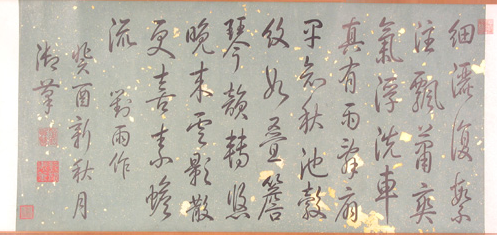 細灑復繁
注飄蕭爽
氣浮洗車
真有雨辭扇
秋池縠
紋如疊簷
琴韻轉悠
晚來雲影散
更喜素蟾
流 對雨作
癸酉新秋月
御筆